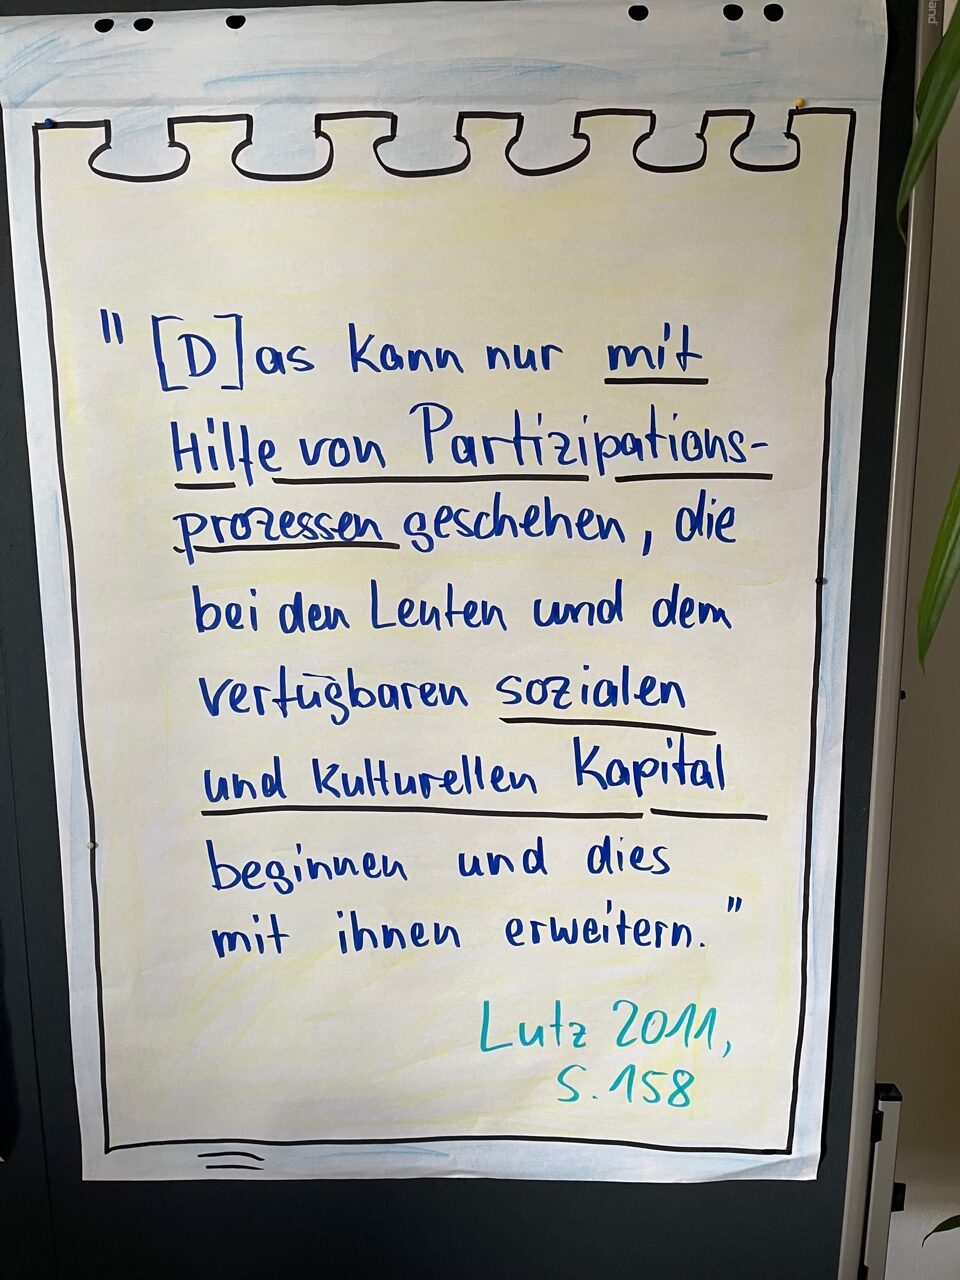 "[D]as kann nur mit
Hilfe von Partizipations-
prozessen geschehen, die
bei den Leuten und dem
verfügbaren sozialen
und kulturellen Kapital
beginnen und dies
mit ihnen erweitern."
Lutz 2011,
S. 158